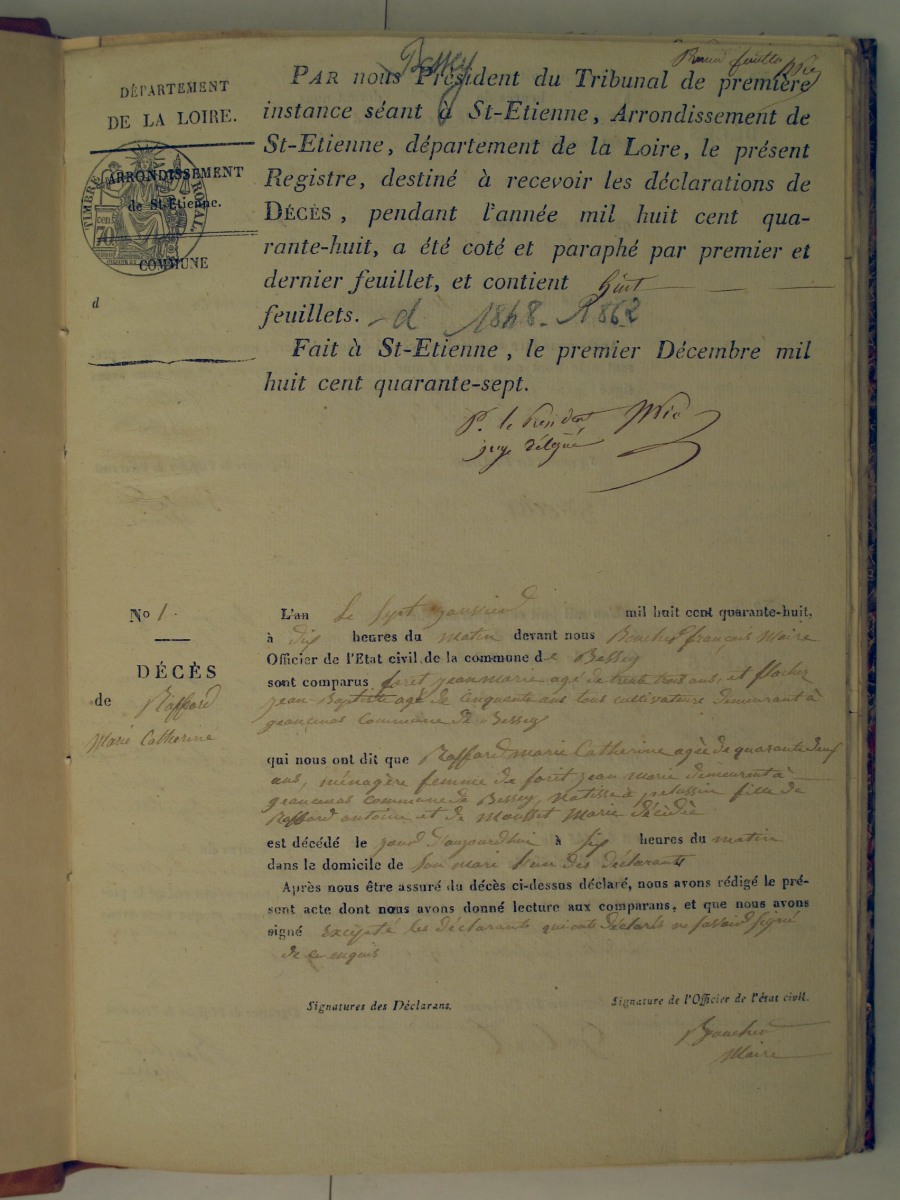 Bessey
Premier feuillet
DÉPARTEMENT
DE LA LOIRE.
ARRONDISSEMENT
de St-Étienne.
COMMUNE
d
TIMBRE ROYAL
70
PAR nous Président du Tribunal de première
instance séant à St-Etienne, Arrondissement de
St-Etienne, département de la Loire, le présent
Registre, destiné à recevoir les déclarations de
DÉCÈS, pendant l'année mil huit cent qua-
rante-huit, a été coté et paraphé par premier et
dernier feuillet, et contient huit
feuillets. d 1848-1862
Fait à St-Etienne, le premier Décembre mil
huit cent quarante-sept.
P. le Président
juge délégué
No 1.
DÉCÈS
de Raffard
Marie Catherine
L'an Le sept janvier mil huit cent quarante-huit,
à dix heures du matin devant nous Boucher françois Maire
Officier de l'Etat civil de la commune de Bessey
sont comparus foret jean marie agé de trente trois ans, et flacher
jean Baptiste agé de Cinquante ans tous cultivateurs demeurant à
geancenas Commune de Bessey
qui nous ont dit que Raffard marie Catherine agée de quarante deux
ans, ménagère femme de forêt jean marie demeurant à
geancenas commune de Bessey, Natisse à pelussin fille de
Raffard antoine et de Mousset Marie décédé
est décédé le jourd d'aujourdhui à six heures du matin
dans le domicile de Son mari l'un des déclarants
Après nous être assuré du décès ci-dessus déclaré, nous avons rédigé le pré-
sent acte dont nous avons donné lecture aux comparans, et que nous avons
signé excepté les déclarants qui ont déclaré ne savoir signé
de ce enquis
Signatures des Déclarans.
Signature de l'Officier de l'état civil.
Boucher
Maire